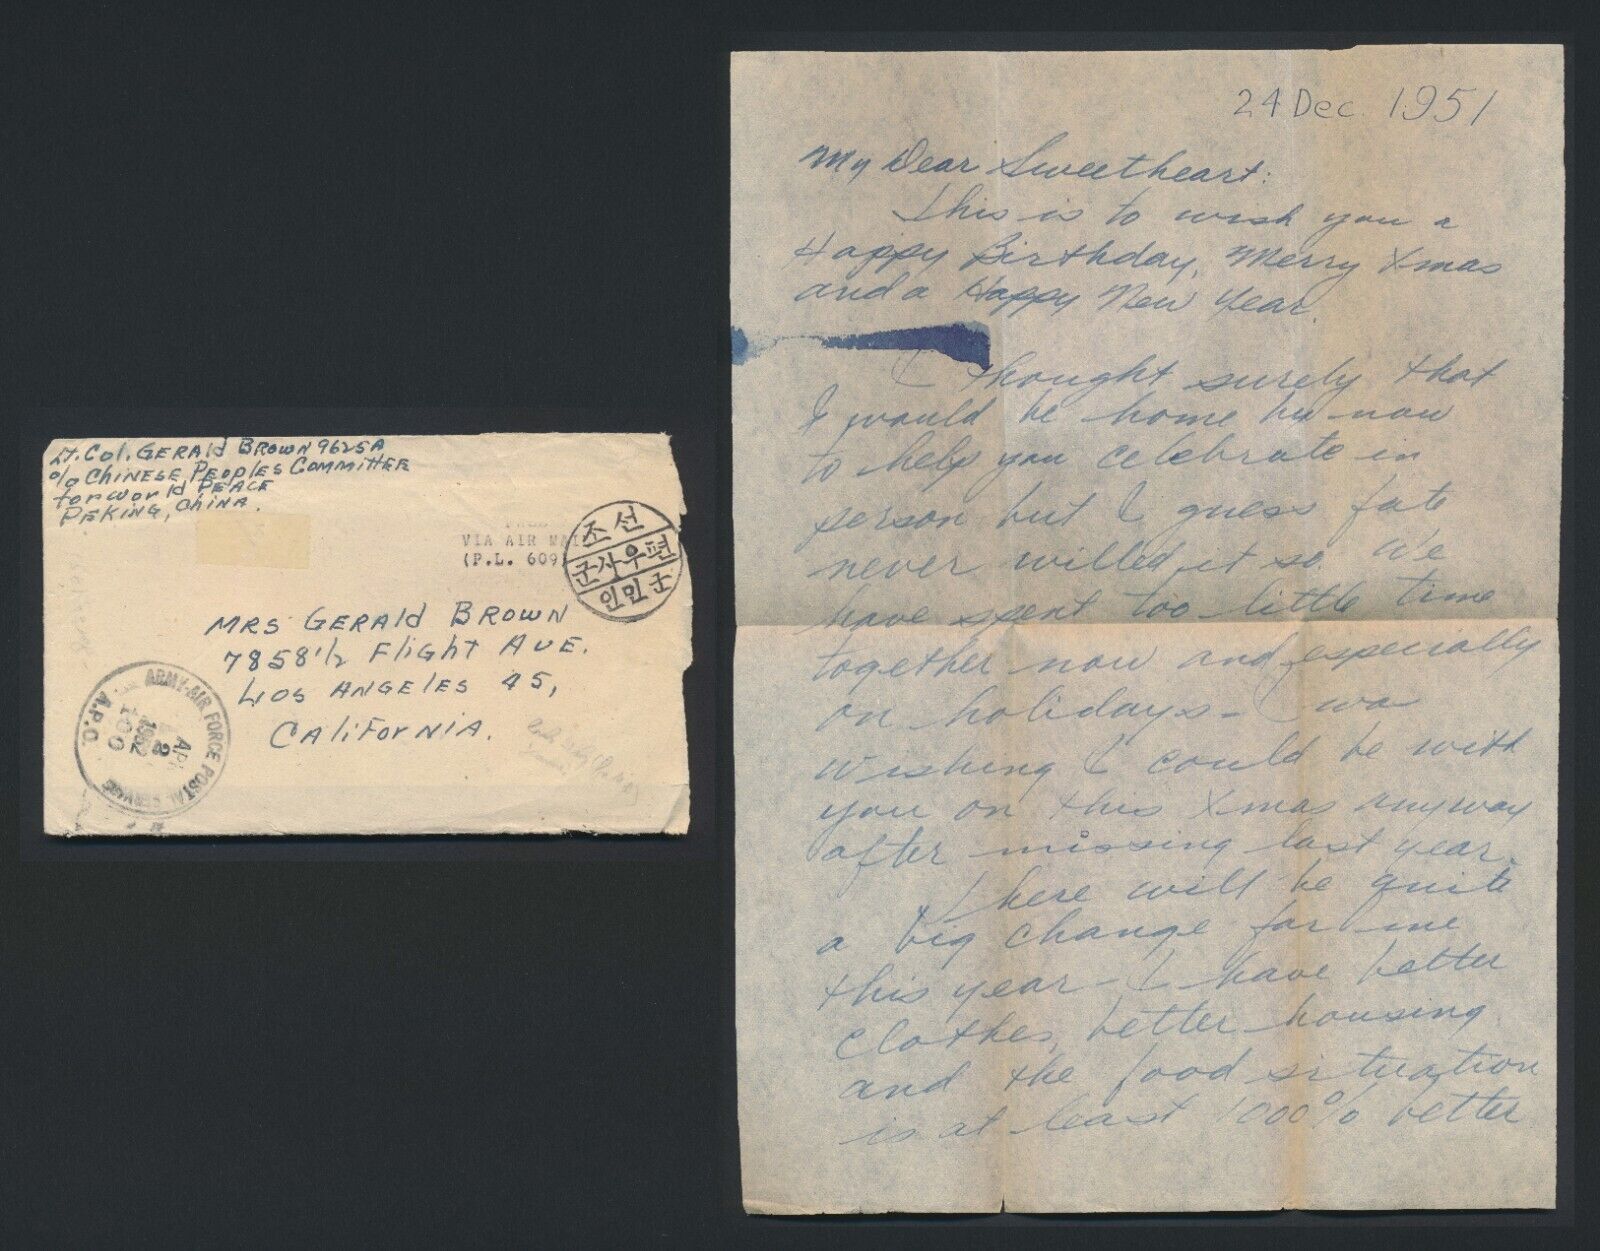 Lt. Col. GERALD BROWN 9625A
c/o CHINESE PEOPLES COMMITTEE
for WORLD PEACE
PEKING, CHINA.
VIA AIR MAI
(P.L. 609)
조선
군사우편
인민군
MRS GERALD BROWN
7858 1/2 FLIGHT AVE.
LOS ANGELES 45,
CALIFORNIA.
ARMY-AIR FORCE POSTAL SERVICE
A.P.O.
APR
2
1952
100
24 Dec. 1951
My Dear Sweetheart:
This is to wish you a
Happy Birthday, Merry Xmas
and a Happy New Year.
I thought surely that
I would be home by now
to help you celebrate in
person but I guess fate
never willed it so. We
have spent too little time
together now and especially
on holidays - I was
wishing I could be with
you on this Xmas anyway
after missing last year.
There will be quite
a big change for me
this year - I have better
clothes, better housing
and the food situation
is at least 1000% better